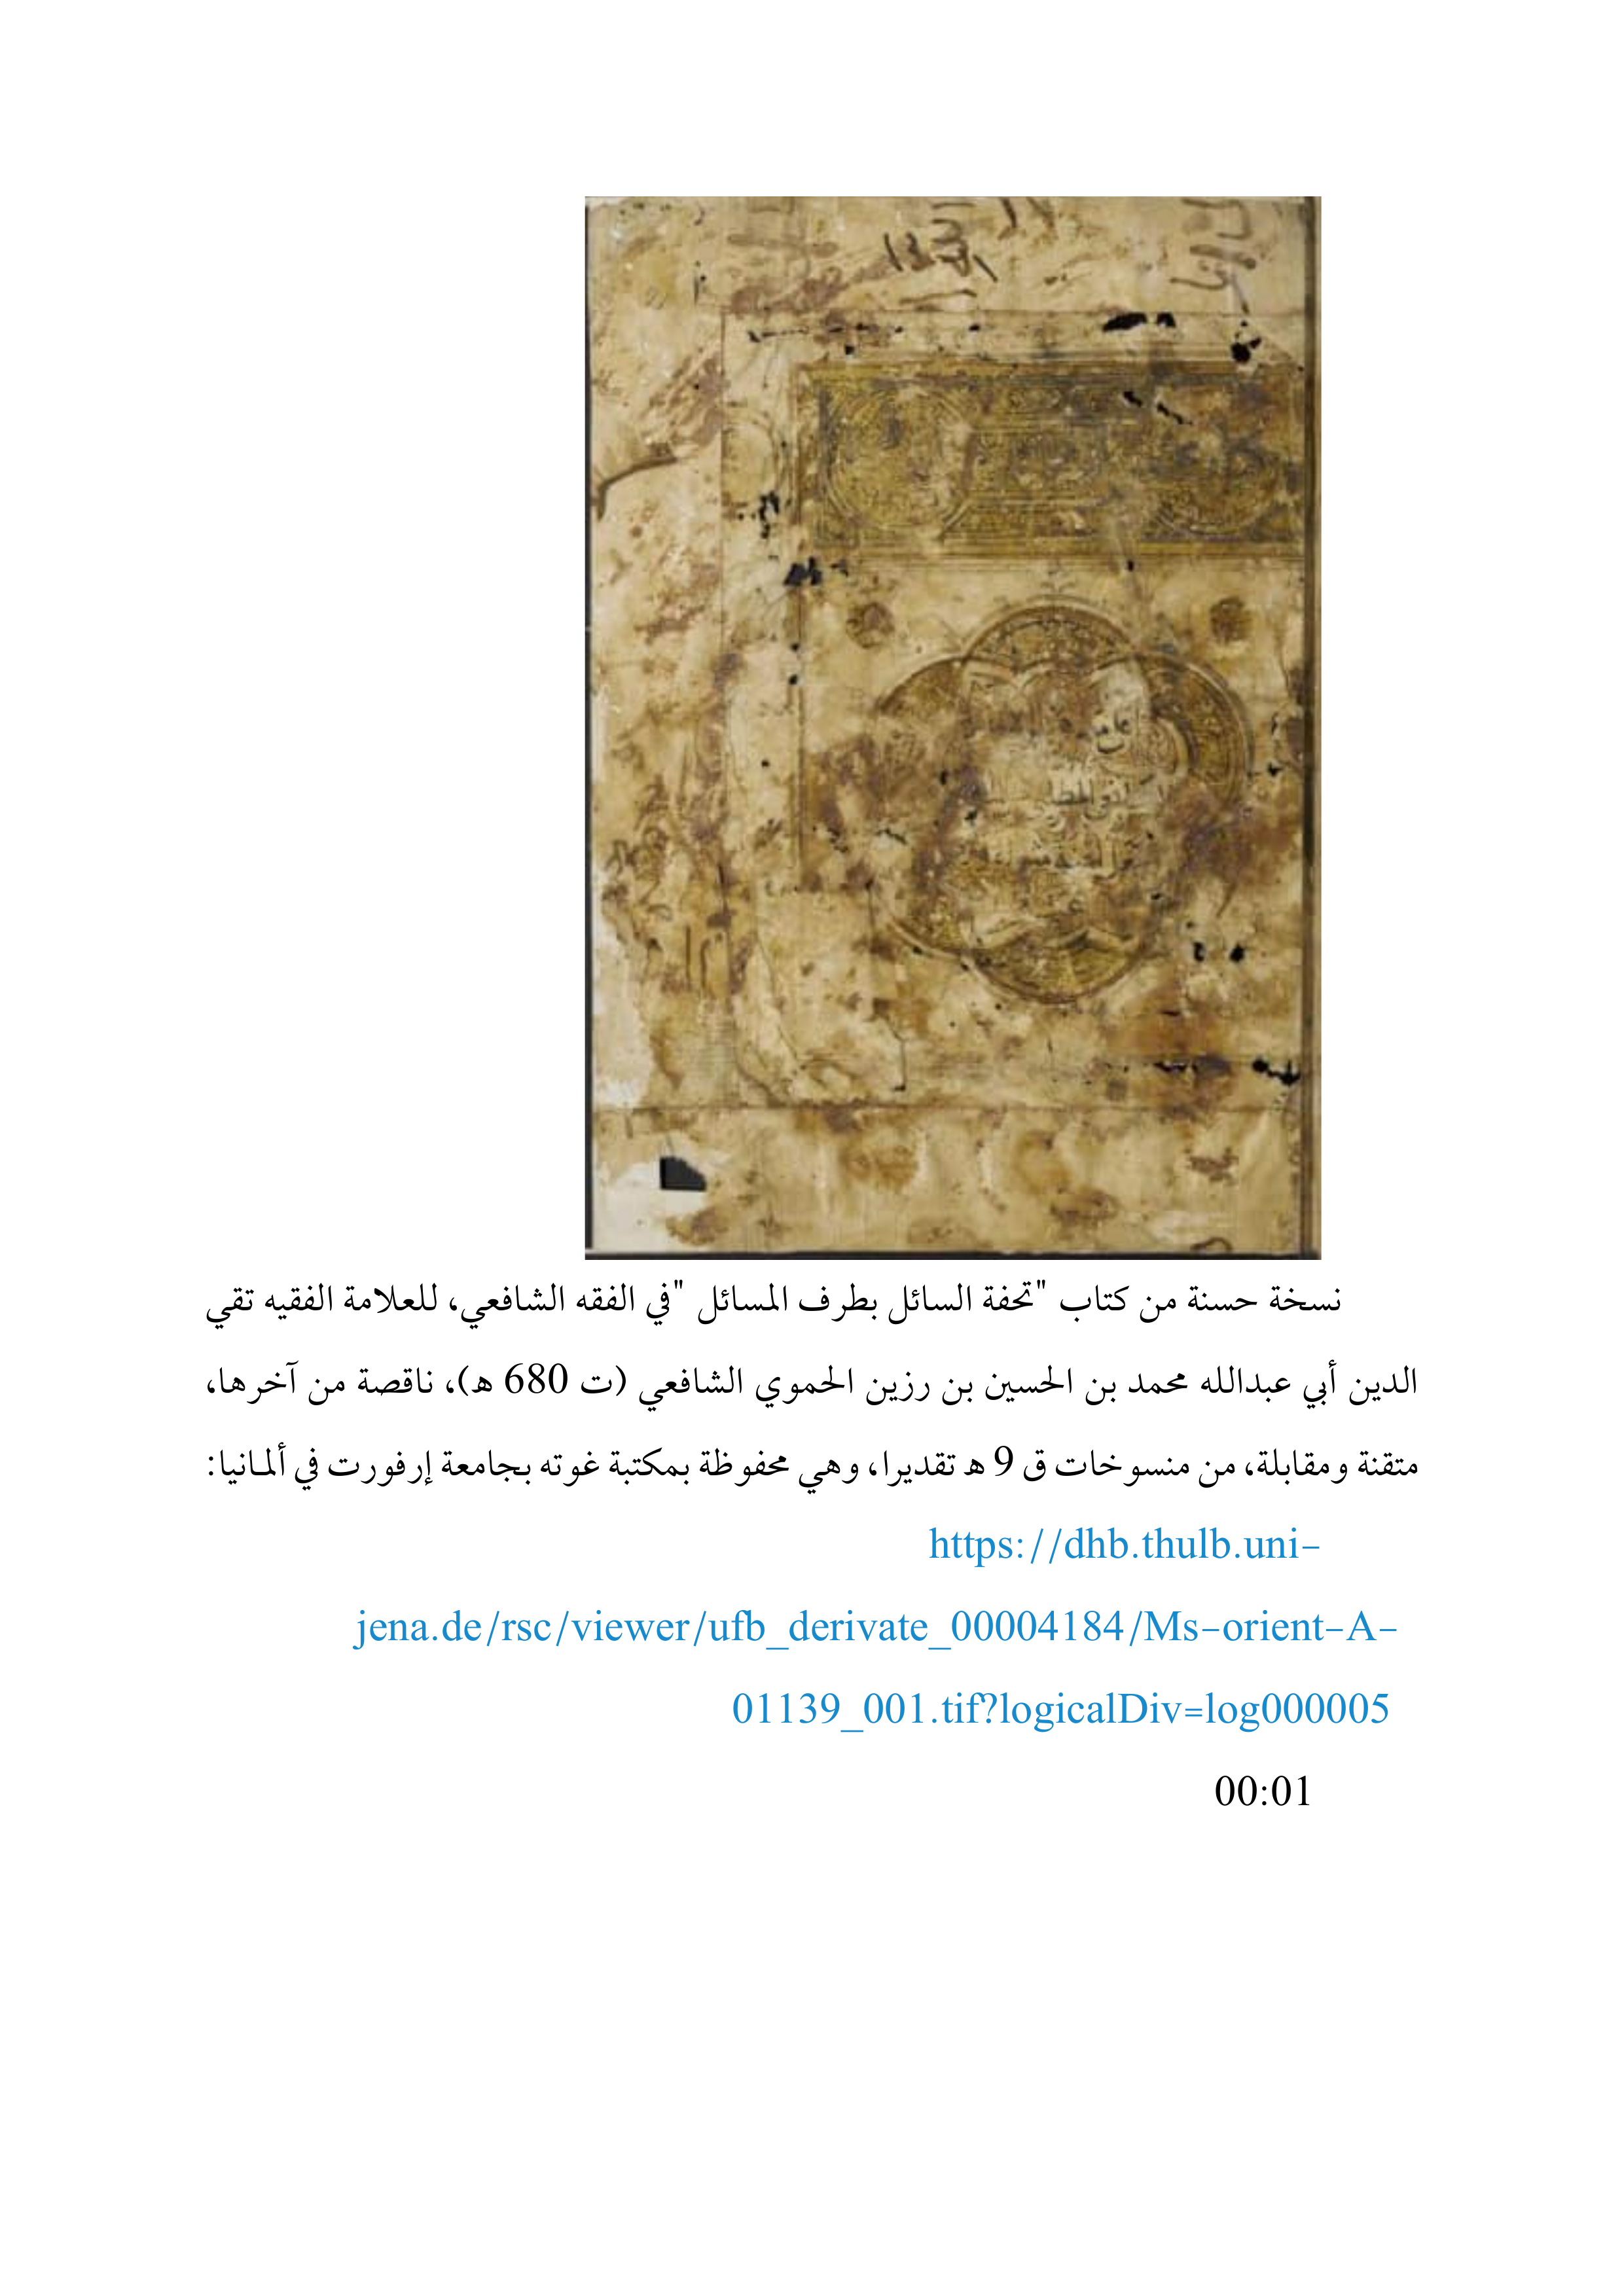 نسخة حسنة من كتاب "تحفة السائل بطرف المسائل "في الفقه الشافعي، للعلامة الفقيه تقي
الدين أبي عبدالله محمد بن الحسين بن رزين الحموي الشافعي (ت 680 ه)، ناقصة من آخرها،
متقنة ومقابلة، من منسوخات ق 9 ه تقديرا، وهي محفوظة بمكتبة غوته بجامعة إرفورت في ألمانيا:
https://dhb.thulb.uni-
jena.de/rsc/viewer/ufb_derivate_00004184/Ms-orient-A-
01139_001.tif?logicalDiv=log000005
00:01